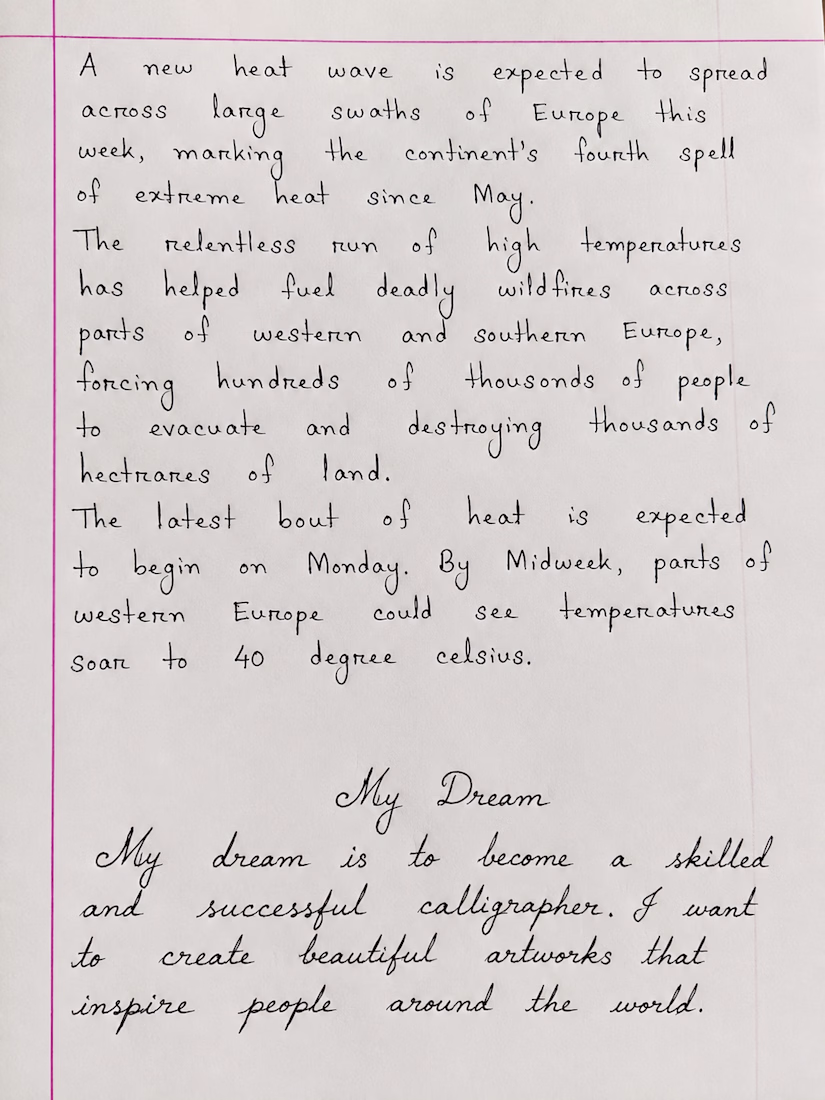 A new heat wave is expected to spread
across large swaths of Europe this
week, marking the continent's fourth spell
of extreme heat since May.
The relentless run of high temperatures
has helped fuel deadly wildfires across
parts of western and southern Europe,
forcing hundreds of thousonds of people
to evacuate and destroying thousands of
hectrares of land.
The latest bout of heat is expected
to begin on Monday. By Midweek, parts of
western Europe could see temperatures
soar to 40 degree celsius.
My Dream
My dream is to become a skilled
and successful calligrapher. I want
to create beautiful artworks that
inspire people around the world.